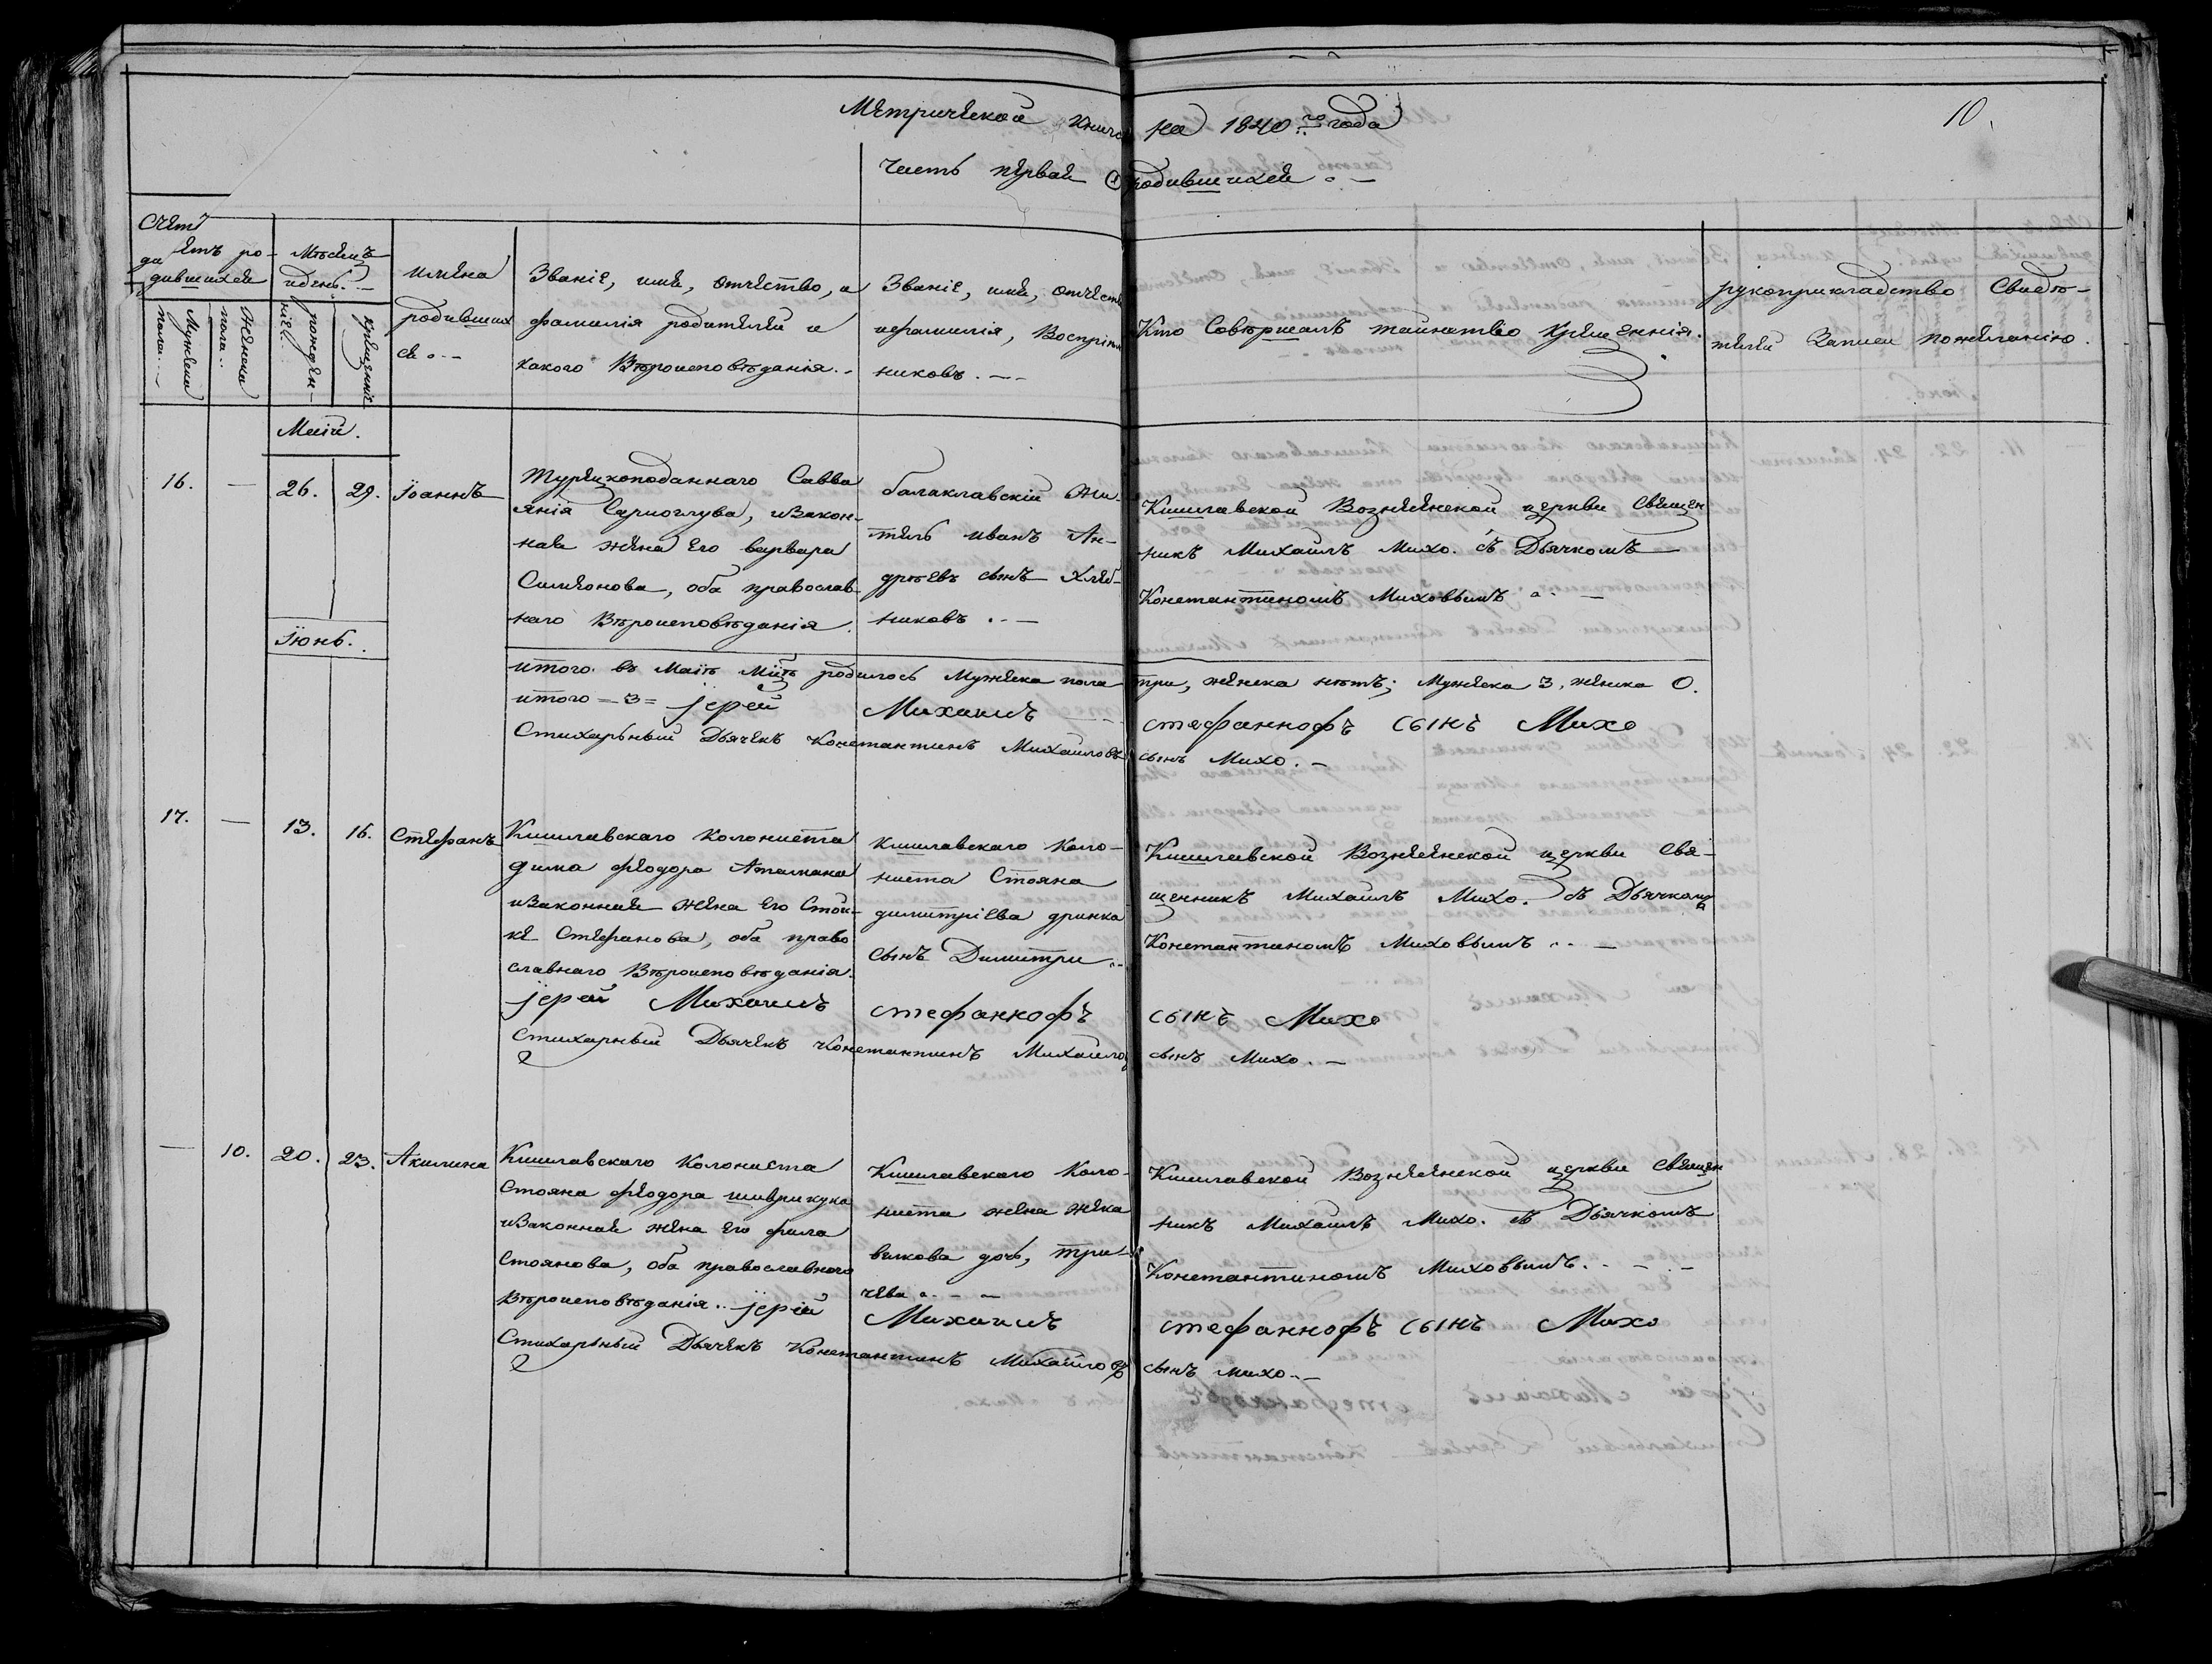 Метрической книги на 1840.го года
10.
Часть первая о родившихся
Счетъ
дѣтъ ро-
дившихся
Мужеска
пола
Женска
пола
Мѣсяцъ
и день.
рожден-
ніе
крещеніе
имена
родивших
ся
Званіе, имя, отчество, и
фамилія родителей и
какого Вѣроисповѣданія.
Званіе, имя, отчество
и фамилія, Воспріем
никовъ.
Кто Совершалъ таинство крещеннія.
рукоприкладство Свидѣ-
телей Записи по желанію.
Маій.
16. — 26. 29. Іоаннъ
Турецкоподаннаго Савва
янія Сариоглува, и закон-
ная жена его варвара
Симеонова, оба православ
наго Вѣроисповѣданія.
балаклавскій жи-
тель иванъ Ан-
дрѣевъ сынъ Хлѣб-
никовъ.
Кишлавской Вознесенской церкви Священ
никъ Михаилъ Михо. съ Дьячкомъ
Константиномъ Миховымъ
Іюнь.
итого въ Маіѣ Мцѣ родилось Мужеска пола три, женска нѣтъ; Мужеска 3, женска 0.
итого = 3 = іерей Михаилъ стефанкофъ сынъ Михо
Стихарный Дьячекъ Константинъ Михаиловъ сынъ Михо.
17. — 13. 16. Стефанъ
Кишлавскаго колониста
дима феодора Атамана
и законная жена его Стой-
ке Стефанова, оба право
славнаго Вѣроисповѣданія.
кишлавскаго коло-
ниста Стояна
димитріева дринка
сынъ Димитри
Кишлавской Вознесенской церкви Свя-
щенникъ Михаилъ Михо. съ Дьячкомъ
Константиномъ Миховымъ
іерей Михаилъ стефанкофъ сынъ Михо
Стихарный Дьячекъ Константинъ Михаилов сынъ Михо.
— 10. 20. 23. Акилина
Кишлавскаго Колониста
Стояна феодора
и законная жена его фила
Стоянова, оба православнаго
Вѣроисповѣданія.
Кишлавскаго Коло-
ниста жена жека
велкова дочь, три-
чева
Кишлавской Вознесенской церкви Священ
никъ Михаилъ Михо. съ Дьячкомъ
Константиномъ Миховымъ.
іерей Михаилъ стефанкофъ сынъ Михо
Стихарный Дьячекъ Константинъ Михаиловъ сынъ михо